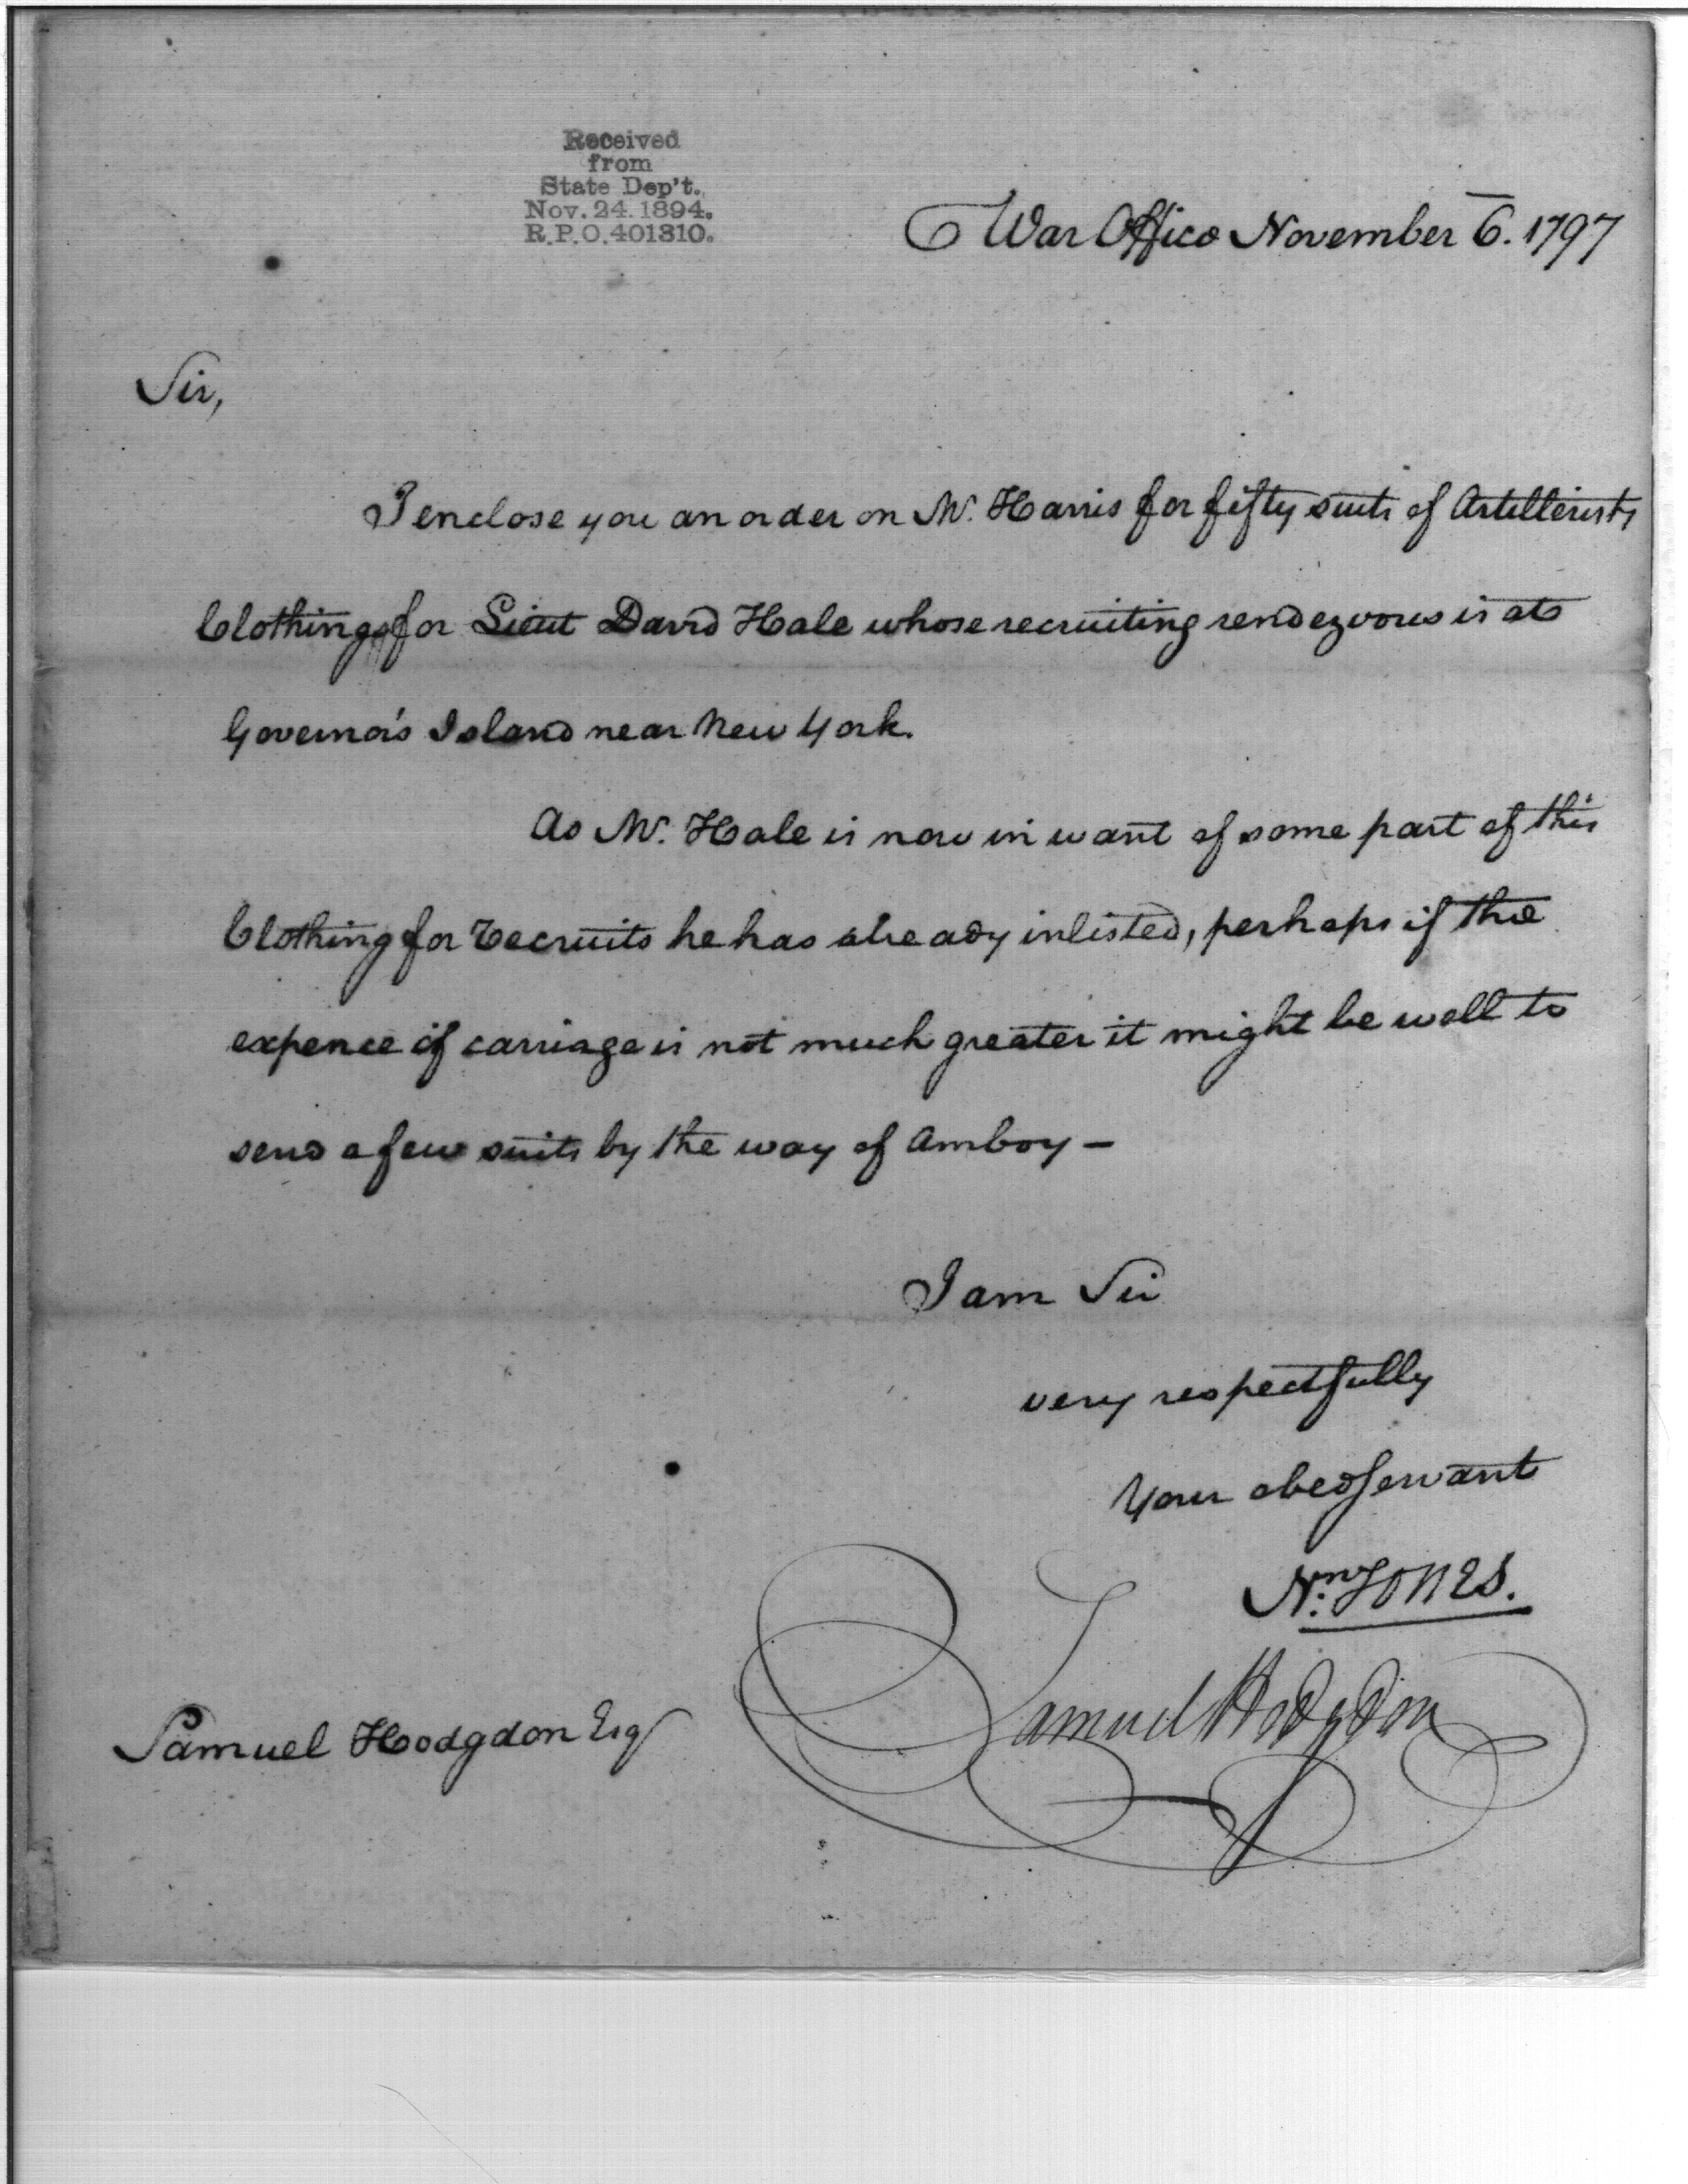 Received
from
State Dep't.
Nov. 24. 1894.
R.P.O. 401310.
War Office November 6. 1797
Sir,
I enclose you an order on Mr. Harris for fifty suits of Artillerists
Clothing for Lieut David Hale whose recruiting rendezvous is at
Governor's Island near New York.
As Mr. Hale is now in want of some part of this
Clothing for Recruits he has already inlisted, perhaps if the
expence of carriage is not much greater it might be well to
send a few suits by the way of Amboy -
I am Sir
very respectfully
Your obed servant
Nn. Jones.
Samuel Hodgdon
Samuel Hodgdon Esq